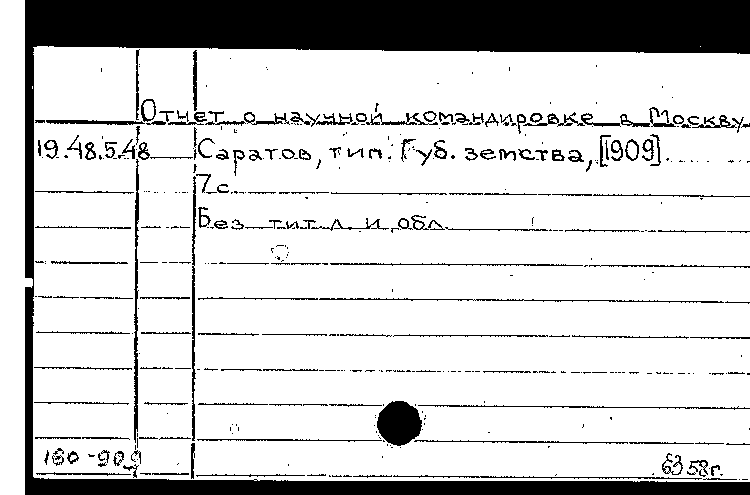 Отчет о научной командировке в Москву
19.48.5.48 Саратов, тип. Губ. земства, [1909]
7 с.
Без тит л. и обл
160-909 58г.